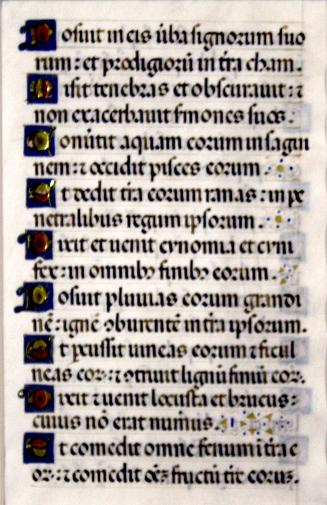 Posuit in eis v̄ba signorum suo
rum: et prodigiorū in tr̄a cham.
Misit tenebras et obscurauit: ⁊
non exacerbauit s̄mones suos.
Conūtit aquam eorum in sangui
nem: ⁊ occidit pisces eorum.
Et dedit tr̄a eorum ranas: in pe
netralibus regum ipsorum.
Dixit et uenit cynomia et cyni
fex: in omnibꝫ finibꝫ eorum.
Posuit pluuias eorum grandi
nē: ignē ꝯburentē in tr̄a ipsorum.
Et ꝑcussit uineas eorum ⁊ ficul
neas eoꝝ: ⁊ ꝯtriuit lignū finiū eoꝝ.
Dixit ⁊ uenit locusta et brucus:
cuius nō erat num̄us.
Et comedit omne fenum ī tr̄a e
oꝝ: ⁊ comedit oēs fructū tr̄e eorum.